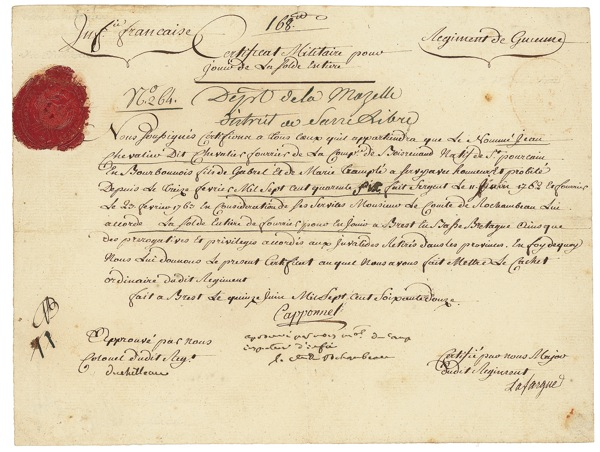 Inf.ie francaise
168
Regiment de Guienne
Certificat Militaire pour
jouir de La Solde Entire
No. 264.
Dep.t de la Mozelle
District de Sarre Libre
Nous Soussignés Certifions a tous Ceux qu'il appartiendra que Le Nommé Jean
Chevalier Dit Chevalier fourrier de La Comp.e de Boisrenaud Natif de St. pourcain
En Bourbonnois fils de Gabriel Et de Marie a Servy avec honneur et probité
Depuis Le Treize fevrier Mil Sept cent quarante fait Sergent Le 11 1762 Et fourrier
Le 25 fevrier 1763 En Consideration de Ses Services Monsieur Le Comte de Rochambeau Lui
accorde La Solde Entire de fourrier pour En Jouir a Brest En Basse Bretagne Ainsi que
des prerogatives Et privileges accordés aux Invalides Retirés dans les provinces. En foy de quoy
Nous Lui donnons Le present Certificat auquel Nous avons fait Mettre Le Cachet
ordinaire dudit Regiment
fait a Brest Le quinze Juin Mil Sept cent Soixante douze.
Capponnet
Approuvé par nous
Colonel Dudit Reg.
duchilleau
approuvé par nous m.al de camp
inspecteur d'inf.ie
le c.te de Rochambeau
Certifié par nous Major
dudit Regiment
Lafargue